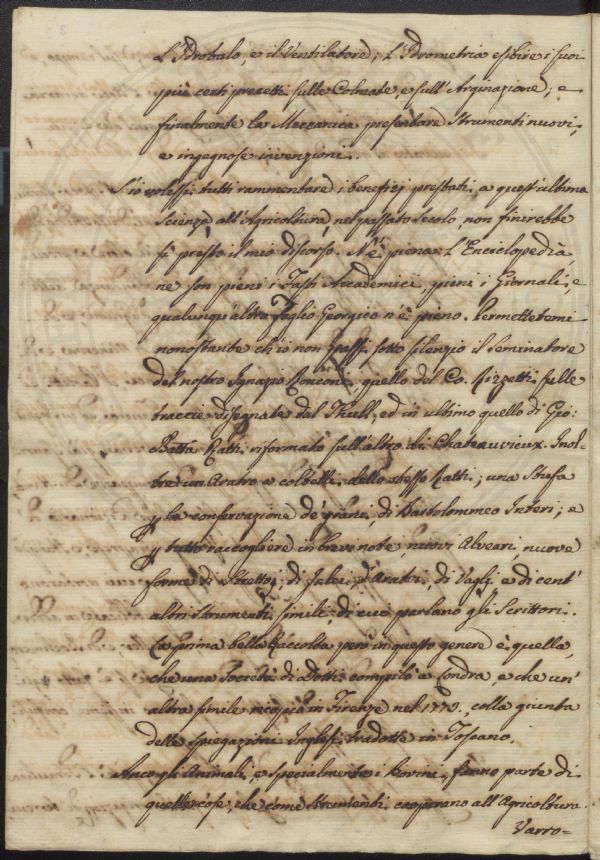 L'Idrobalo, e il Ventilatore; L'Idrometria esibire i suoi
più certi precetti sulle Colmate, e sull'Arginazione; e
finalmente la Meccanica presentare strumenti nuovi,
e ingegnose invenzioni.
S'io volessi tutti rammentare i beneficj prestati a quest'ultima
scienza all'Agricoltura nel passato secolo, non finirebbe
sì presto il mio discorso. N'è piena L'Enciclopedia,
ne son pieni i Fasti Accademici, pieni i Giornali, e
qualunqu'altro foglio Georgico n'è pieno. Permettetemi
nonostante ch'io non passi sotto silenzio il seminatore
del nostro Ignazio Ronconi, quello del Co. Rizzetti sulle
traccie disegnate dal Thull, ed in ultimo quello di Gio:
Batta Ratti riformato sull'altro di Chateauvieux. Inol-
tre un Aratro a coltelli dello stesso Ratti; una Stufa
p la conservazione de' grani, di Bartolommeo Interi; e
p tutto raccogliere in brevi note, nuovi Alveari, nuove
forme di Strettoj, di falci, d'Aratri, di Vagli e di cent'
altri strumenti simili, di cui parlano gli Scrittori.
La prima bella Raccolta però in questo genere è quella,
che una Società di Dotti compilò a Londra, e che un'
altra simile in Firenze nel colla giunta
delle spiegazioni Inglesi tradotte in Toscano.
Anco gli Animali, e specialmente i Bovini, fanno parte di
quelle cose, che come strumenti cooperano all'Agricoltura.
Varro=